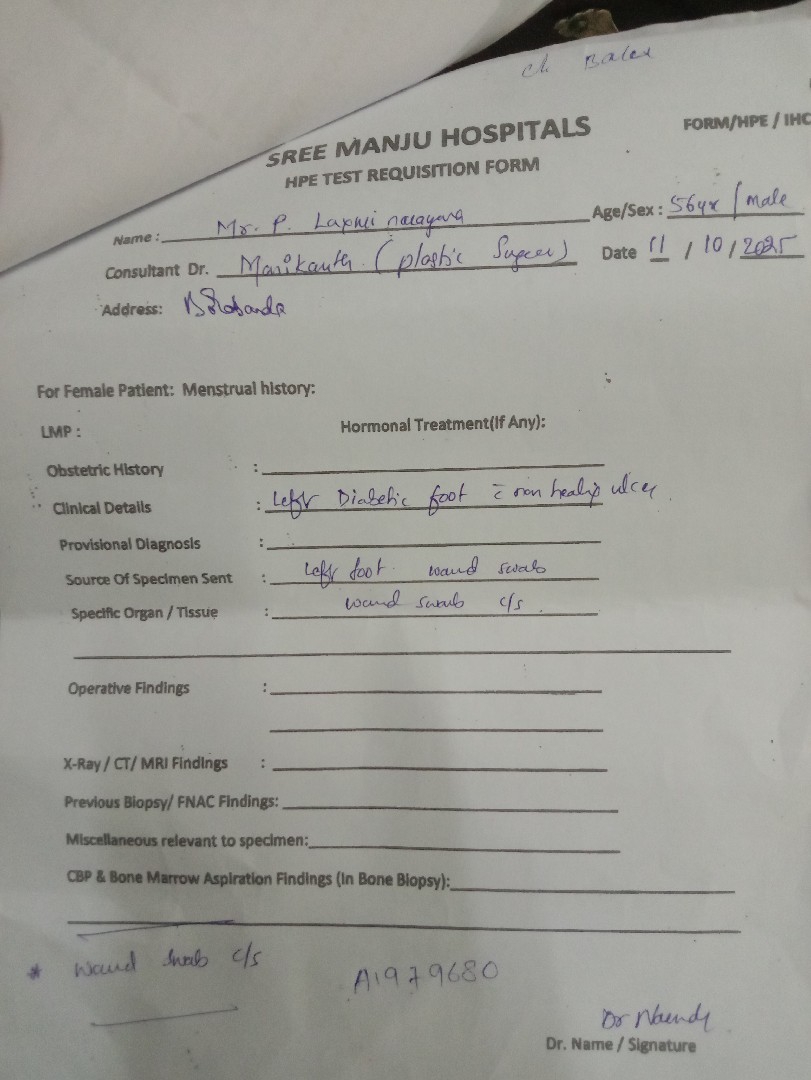 ch. Balex
SREE MANJU HOSPITALS
FORM/HPE / IHC
HPE TEST REQUISITION FORM
Name : Mr. P. Laxmi narayana
Age/Sex : 56yr / male
Consultant Dr. Manikanta (plastic
Date 11 / 10 / 2025
Address:
For Female Patient: Menstrual history:
LMP :
Hormonal Treatment(If Any):
Obstetric History :
Clinical Details : Left Diabetic foot c̄ non healing ulcer
Provisional Diagnosis :
Source Of Specimen Sent : Left foot wound swab
Specific Organ / Tissue : wound swab c/s
Operative Findings :
X-Ray / CT/ MRI Findings :
Previous Biopsy/ FNAC Findings:
Miscellaneous relevant to specimen:
CBP & Bone Marrow Aspiration Findings (In Bone Biopsy):
* wound swab c/s
A1979680
Dr
Dr. Name / Signature